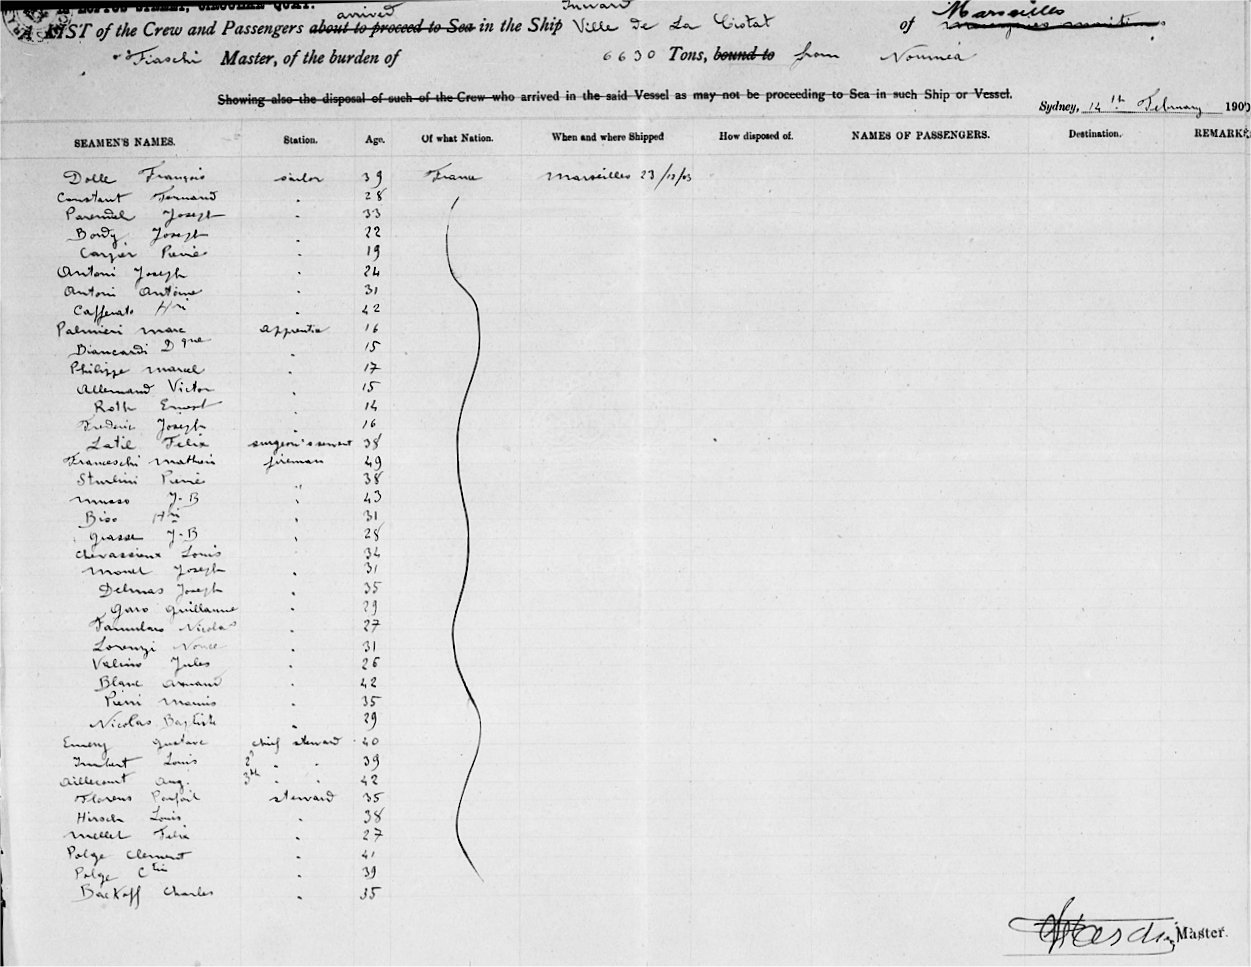 arrived Inward Marseilles
A LIST of the Crew and Passengers about to proceed to Sea in the Ship Ville de La Ciotat of
Fiaschi Master, of the burden of 6630 Tons, bound to from Nouméa
Showing also the disposal of such of the Crew who arrived in the said Vessel as may not be proceeding to Sea in such Ship or Vessel.
Sydney, 14th February 190
SEAMEN'S NAMES. Station. Age. Of what Nation. When and where Shipped How disposed of. NAMES OF PASSENGERS. Destination. REMARKS
Dolle François sailor 39 France Marseilles 23/12/03
Constant Fernand " 28
Parendel Joseph " 33
Bordy Joseph " 22
Carfér Pierre " 19
Antoni Joseph " 24
Antoni Antoine " 31
Caffenato Hri " 42
Palmieri Marc apprentice 16
Biancardi Dque " 15
Philippe Marcel " 17
Allemand Victor " 15
Roth Ernest " 14
Frederic Joseph " 16
Latil Felix surgeon's servant 38
Franceschi Matheis fireman 49
Sturlini Pierre " 38
Musso J-B " 43
Biso Hri " 31
Grasse J-B " 28
Chevassieux Louis 34
Monel Joseph " 31
Delmas Joseph " 35
Garo Guillaume " 29
Nicolas " 27
Lorenzi Nonce " 31
Valino Jules " 26
Blanc Armand " 42
Pierri " 35
Nicolas Baptiste " 29
Emery Gustave chief steward 40
Imbert Louis 2d " " 39
Aillecourt Aug. 3th " " 42
Florens Parfait steward 35
Hirsch Louis " 38
Mellet Felix " 27
Polge Clement " 41
Polge Ctin " 39
Backoff Charles " 35
Master.